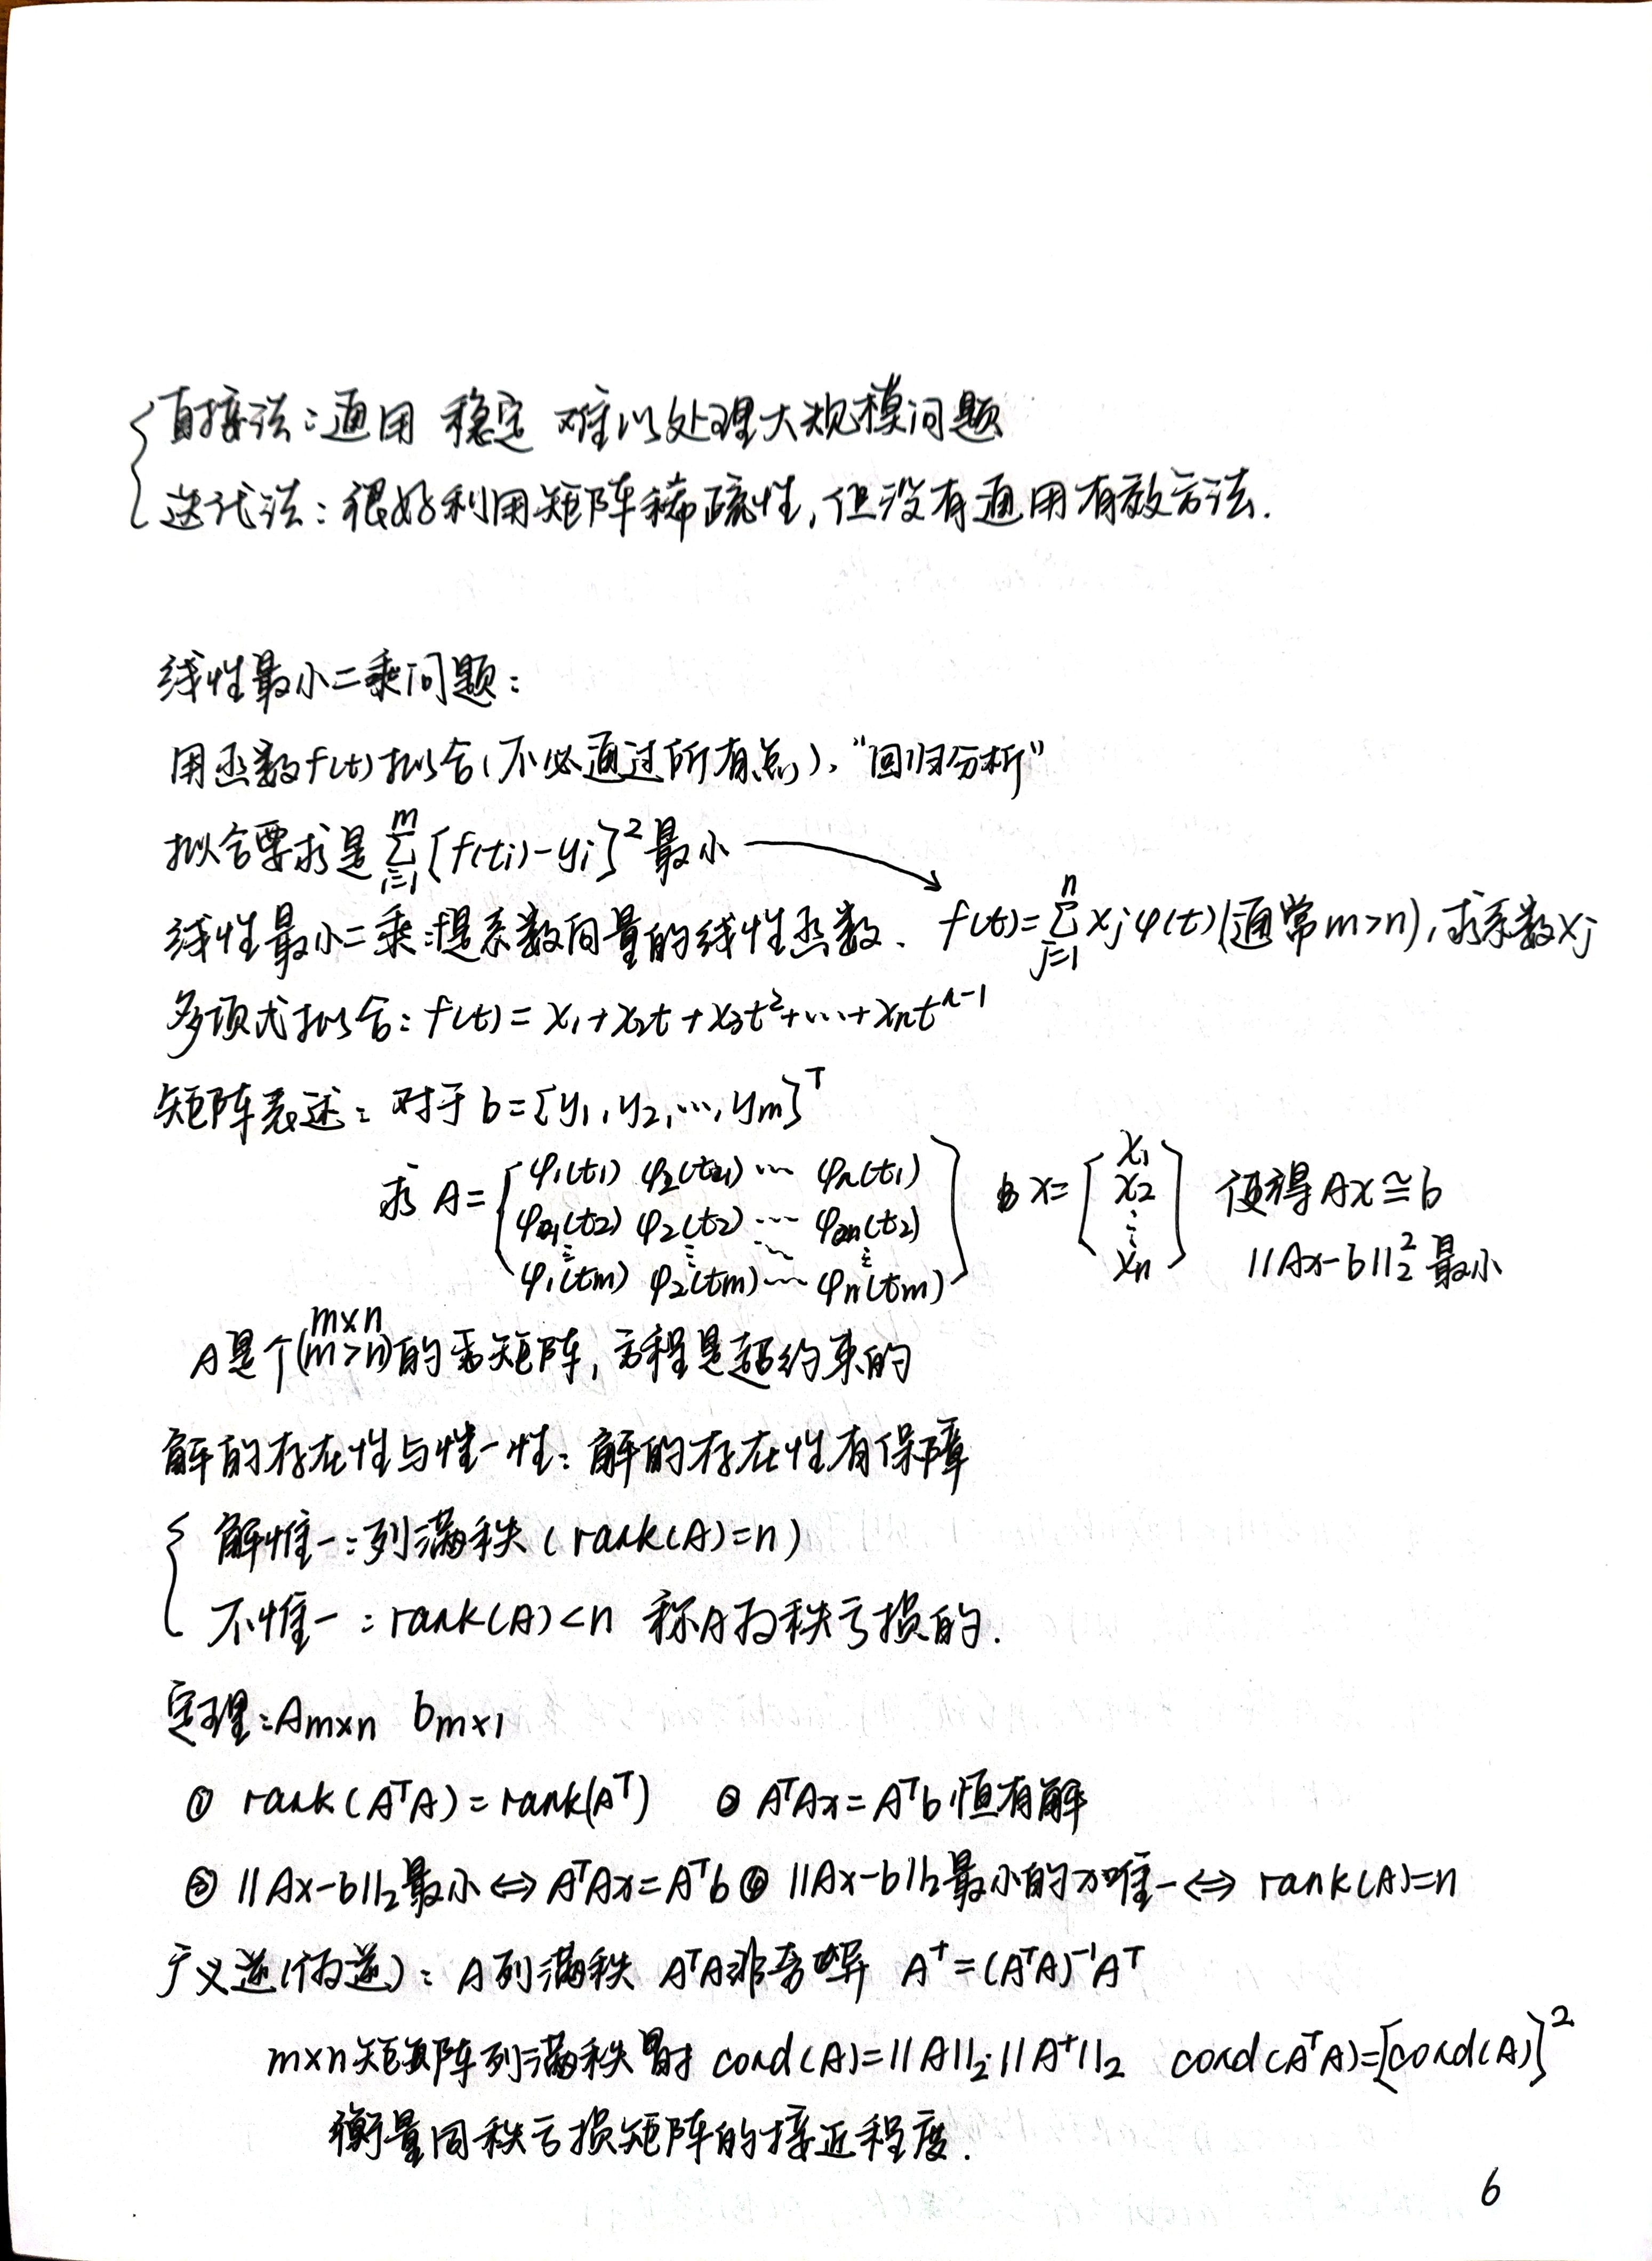 直接法：通用 稳定 难以处理大规模问题
迭代法：很好利用矩阵稀疏性，但没有通用有效方法.
线性最小二乘问题：
用函数f(t)拟合(不必通过所有点)、“回归分析”
拟合要求是 ∑_{i=1}^{m} [f(ti)-yi]² 最小 →
线性最小二乘:f是系数向量的线性函数、 f(t)=∑_{j=1}^{n} xjφ(t)(通常m>n),求系数xj
多项式拟合：f(t)=x₁+x₂t+x₃t²+…+xₙtⁿ⁻¹
矩阵表述：对于b=[y₁,y₂,…,ym]ᵀ
求 A=[φ₁(t₁) φ₂(t₁) … φn(t₁) x=[x₁
φ₁(t₂) φ₂(t₂) … φn(t₂) x₂ 使得Ax≅b
⋮ ⋮ ⋱ ⋮ ⋮
φ₁(tm) φ₂(tm) … φn(tm)] xn] ||Ax-b||₂² 最小
m×n
A是个(m>n)的矩阵，方程是超约束的
解的存在性与惟一性：解的存在性有保障
解惟一：列满秩(rank(A)=n)
不惟一：rank(A)<n 称A为秩亏损的.
定理：Am×n bm×1
① rank(AᵀA)=rank(Aᵀ) ② AᵀAx=Aᵀb恒有解
③ ||Ax-b||₂最小⇔AᵀAx=Aᵀb ④ ||Ax-b||₂最小的x唯一⇔ rank(A)=n
广义逆(伪逆)：A列满秩 AᵀA非奇异 A⁺=(AᵀA)⁻¹Aᵀ
m×n矩阵列满秩时 cond(A)=||A||₂·||A⁺||₂ cond(AᵀA)=[cond(A)]²
衡量同秩亏损矩阵的接近程度.
6